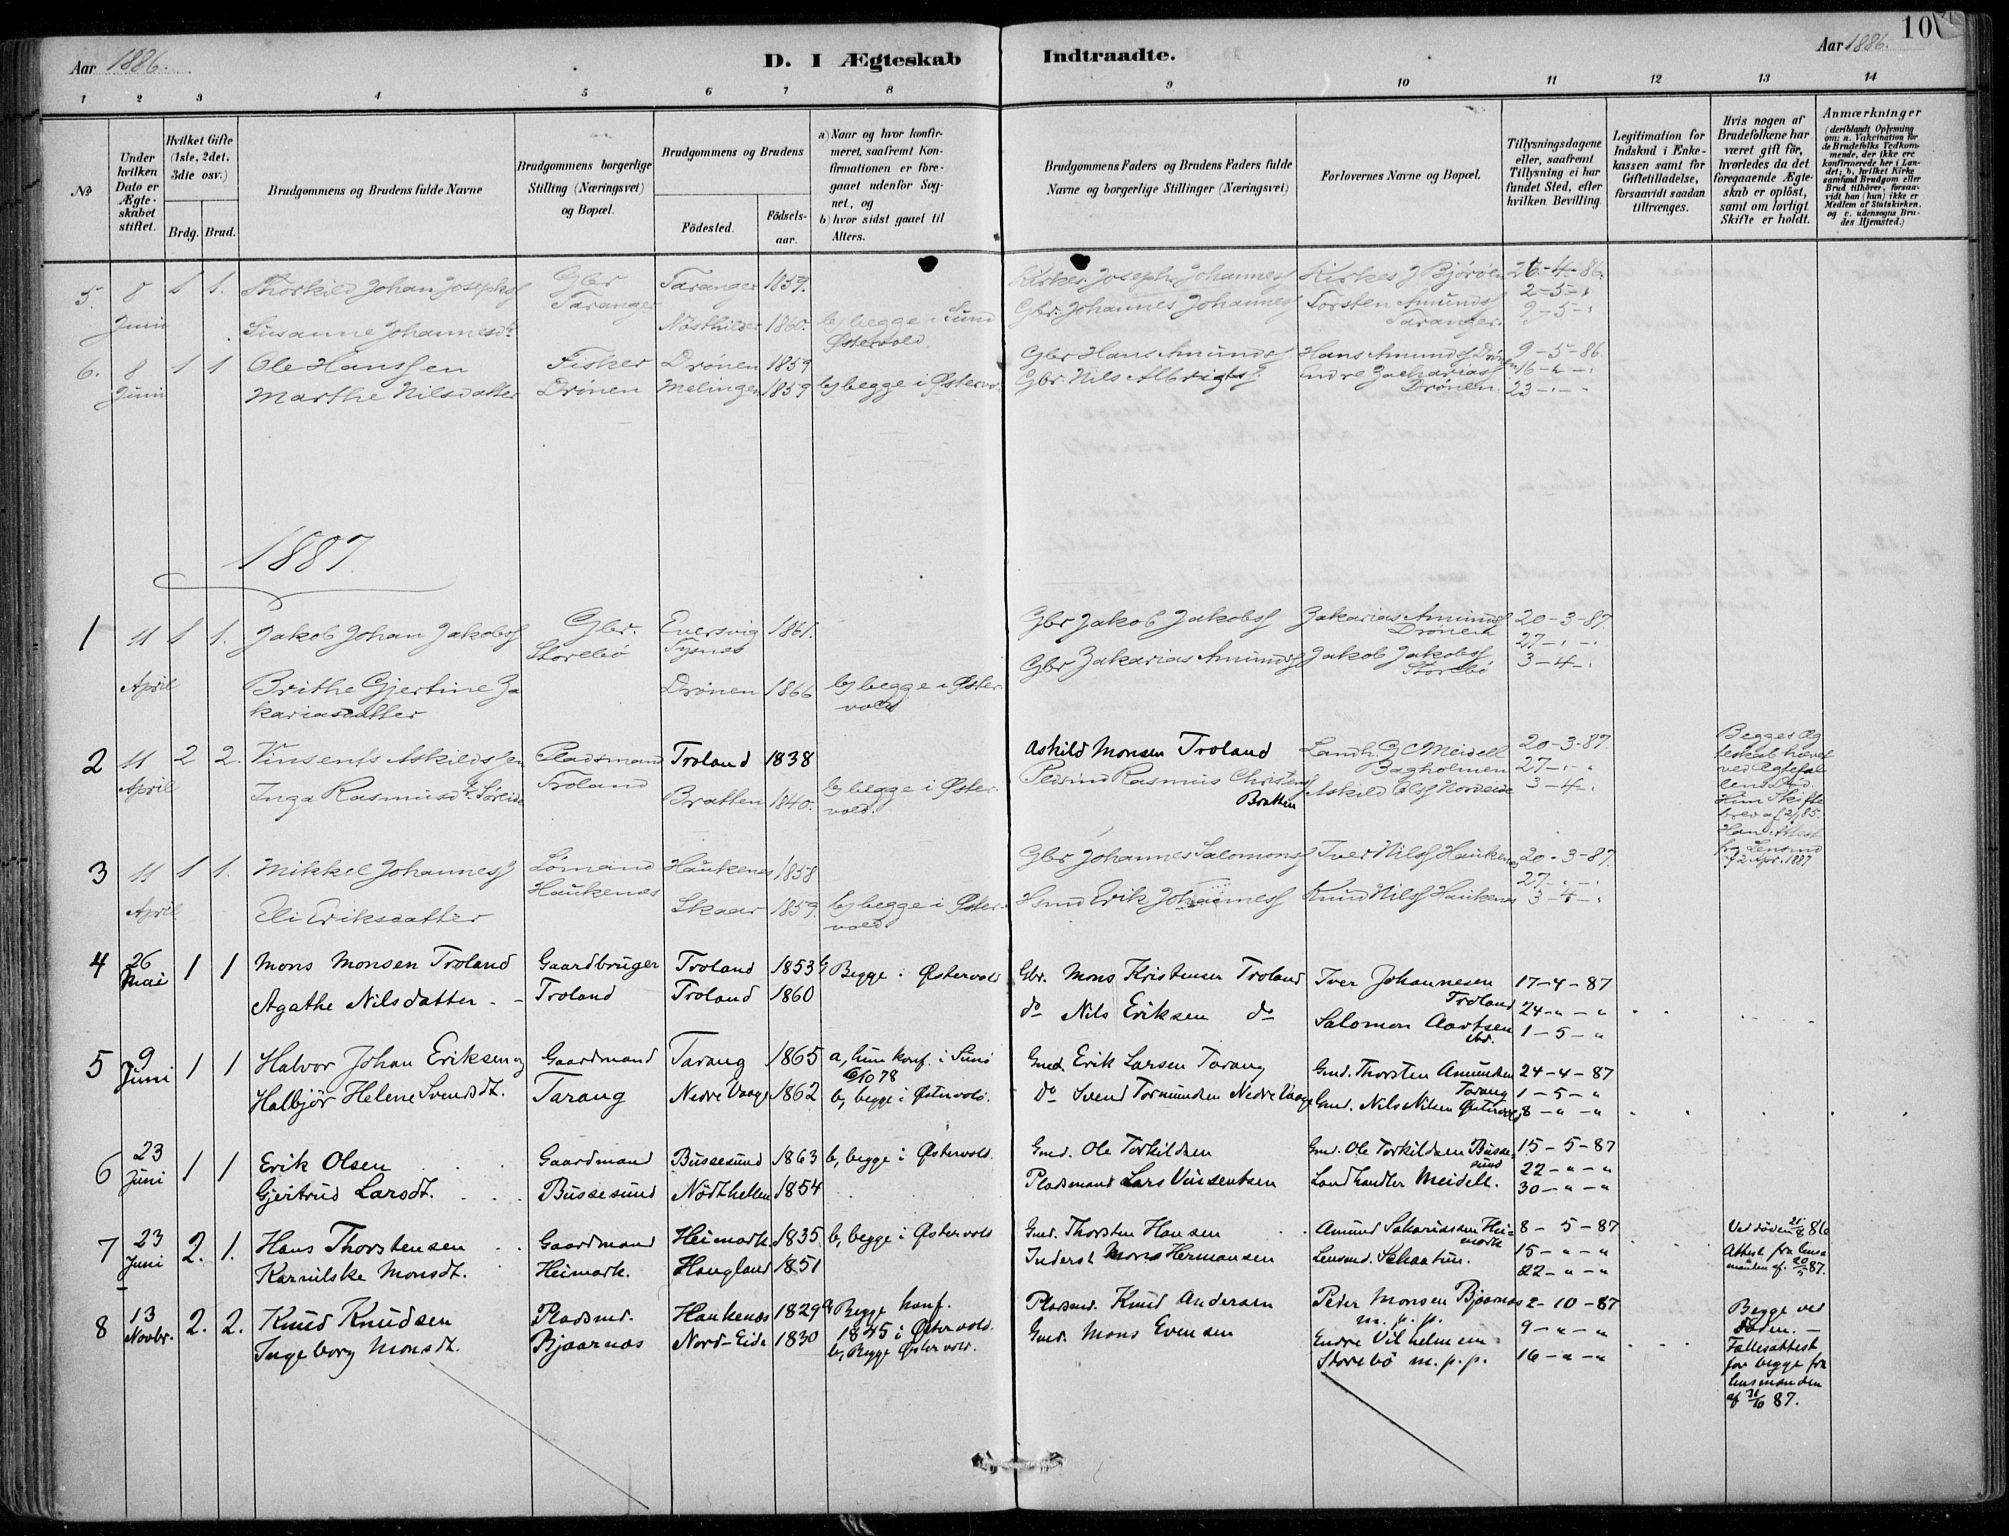 Aar 1886.
D. I Ægteskab Indtraadte.
Aar 1886.
10
1 2 3 4 5 6 7 8 9 10 11 12 13 14
№
Under hvilken Dato er Ægteskabet stiftet.
Hvilket Gifte (1ste, 2det, 3die osv.)
Brdg. Brud.
Brudgommens og Brudens fulde Navne
Brudgommens borgerlige Stilling (Næringsvei) og Bopæl.
Brudgommens og Brudens
Fødested.
Fødsels-aar.
a) Naar og hvor konfirmeret, saafremt Konfirmationen er foregaaet udenfor Sognet, og
b) hvor sidst gaaet til Alters.
Brudgommens Faders og Brudens Faders fulde Navne og borgerlige Stillinger (Næringsvei)
Forlovernes Navne og Bopæl.
Tillysningsdagene eller, saafremt Tillysning ei har fundet Sted, efter hvilken Bevilling.
Legitimation for Indskud i Enkekassen samt for Giftetilladelse, forsaavidt saadan tiltrænges.
Hvis nogen af Brudefolkene har været gift før, hvorledes da det foregaaende Ægteskab er opløst, samt om lovligt Skifte er holdt.
Anmærkninger
(deriblandt Oplysning om: a. Vakcination for de Brudefolks Vedkommende, der ikke ere konfirmerede her i Landet; b. hvilket Kirkesamfund Brudgom eller Brud tilhører, forsaavidt han (hun) ikke er Medlem af Statskirken, og c. udensogns Brudes Hjemsted.)
5. 8 1 1. Thorkild Johan Josephss Gbr Taranger 1859. Kirkes. Joseph Johanness Kirkes J Bjørøen 26-4-86.
Taranger 2-5-"
Juni Susanne Johannesdt. Nøsthildes 1860. b) begge i Sund Østervold. Gbr. Johannes Johanness Torsten Amunds Taranger. 9-5-"
6. 8 1 1 Ole Hanssen Fisker Drönen 1859 Gbr Hans Amunds Hans Amunds Drönen 9-5-86.
Juni Marthe Nilsdatter Drönen Melingen 1859 b) begge i Østervo. Gbr. Nils Albrigts Endre Zacharias Drönen. 16-"-"
23-"-"
1887.
1 11 1 1. Jakob Johan Jakobss Gbr. Eversvig Tysnes 1861. Gbr Jakob Jakobss Zakarias Amunds Drönen 20-3-87.
Storebö 27-"-"
April Brithe Gjertine Zakariasdatter Drönen 1866 b) begge i Østervold Gbr Zakarias Amunds Jakob Jakobs Storebö 3-4-"
2 11 2 2. Vinsents Askildssen Pladsmand Troland 1838 Askild Monsen Troland Landh. G C Meidell Bagholmen 20-3-87.
April Inga Rasmusdt. Søreide Troland Bratten 1840. b) begge i Østervold. Rasmus Christens Bratten Askild Ols Nordeide 27-"-"
3-4-"
Begges Ægteskab hævet ved Ægtefællens Död. Hun Skiftebrev af 2/85. Han Attest fra Lensmd af 2 Apr. 1887
3 11 1 1. Mikkel Johanness Lömand Haukenæs 1858 Gbr Johannes Salomons Iver Nilss Haukenæs 20-3-87.
Haukenæs 27-"-"
April Eli Eriksdatter Skaar 1859. b) begge i Østervold Hsmd Erik Johanness Knud Nilss Haukenæs 3-4-"
4 26 Mai 1 1 Mons Monsen Troland Gaardbruger Troland 1853 b, Begge i Østervold Gbr. Mons Kristensen Troland Iver Johannesen Troland 17-4-87
Agathe Nilsdatter - - Troland Troland 1860 do Nils Eriksen do Salomon Aartsen ibd. 24-"-"
1-5-"
5 9 Juni 1 1 Halvor Johan Eriksen og Gaardmand Tarang 1865 a, hun konf. i Sund 6/10 78 Gmd. Erik Larsen Tarang Gmd. Thorsten Amundsen Tarang 24-4-87
Halbjör Helene Svendsdt. Tarang Nedre Vaage 1862 b, begge i Østervold. do Svend Tormundsen Nedre Vaage Gmd. Nils Nilsen Østervold 1-5-"
8-"-"
6 23 Juni 1 1 Erik Olsen Gaardmand Bussesund 1863 b, begge i Østervold. Gmd. Ole Torkildsen Gmd. Ole Torkildsen Bussesund 15-5-87
Gjertrud Larsdt. Bussesund Nödthellen 1854 Pladsmand Lars Vinsentsen Landhandler Meidell. 22-"-"
30-"-"
7 23 Juni 2. 1. Hans Thorstensen Gaardmand Heimark 1835. b, begge i Østervold Gmd. Thorsten Hansen Amund Sakariassen Heimark 8-5-87
Karnilske Monsdt. Heimark. Haugland 1851 Inderst Mons Hermansen Lensmd. Schaatun. 15-"-"
22-"-"
Ved döden 21/8 86 Attest fra lensmanden af. 20/5 87.
8 13 Novbr. 2. 2. Knud Knudsen Pladsmd. Haukenæs 1829 a, Begge konf. 1845 i Østervold. Pladsmd. Knud Andersen Peder Monsen Bjaarnæs m. p. p. 2-10-87
Ingeborg Monsdt. Bjaarnæs Nord-Eide 1830 b, Begge Østervold. Gmd. Mons Evensen Endre Vilhelmsen Storebö m. p. p. 9-"-"
16-"-"
Begge ved döden. - Fællesattest for begge fra lensmanden af 31/10 87.